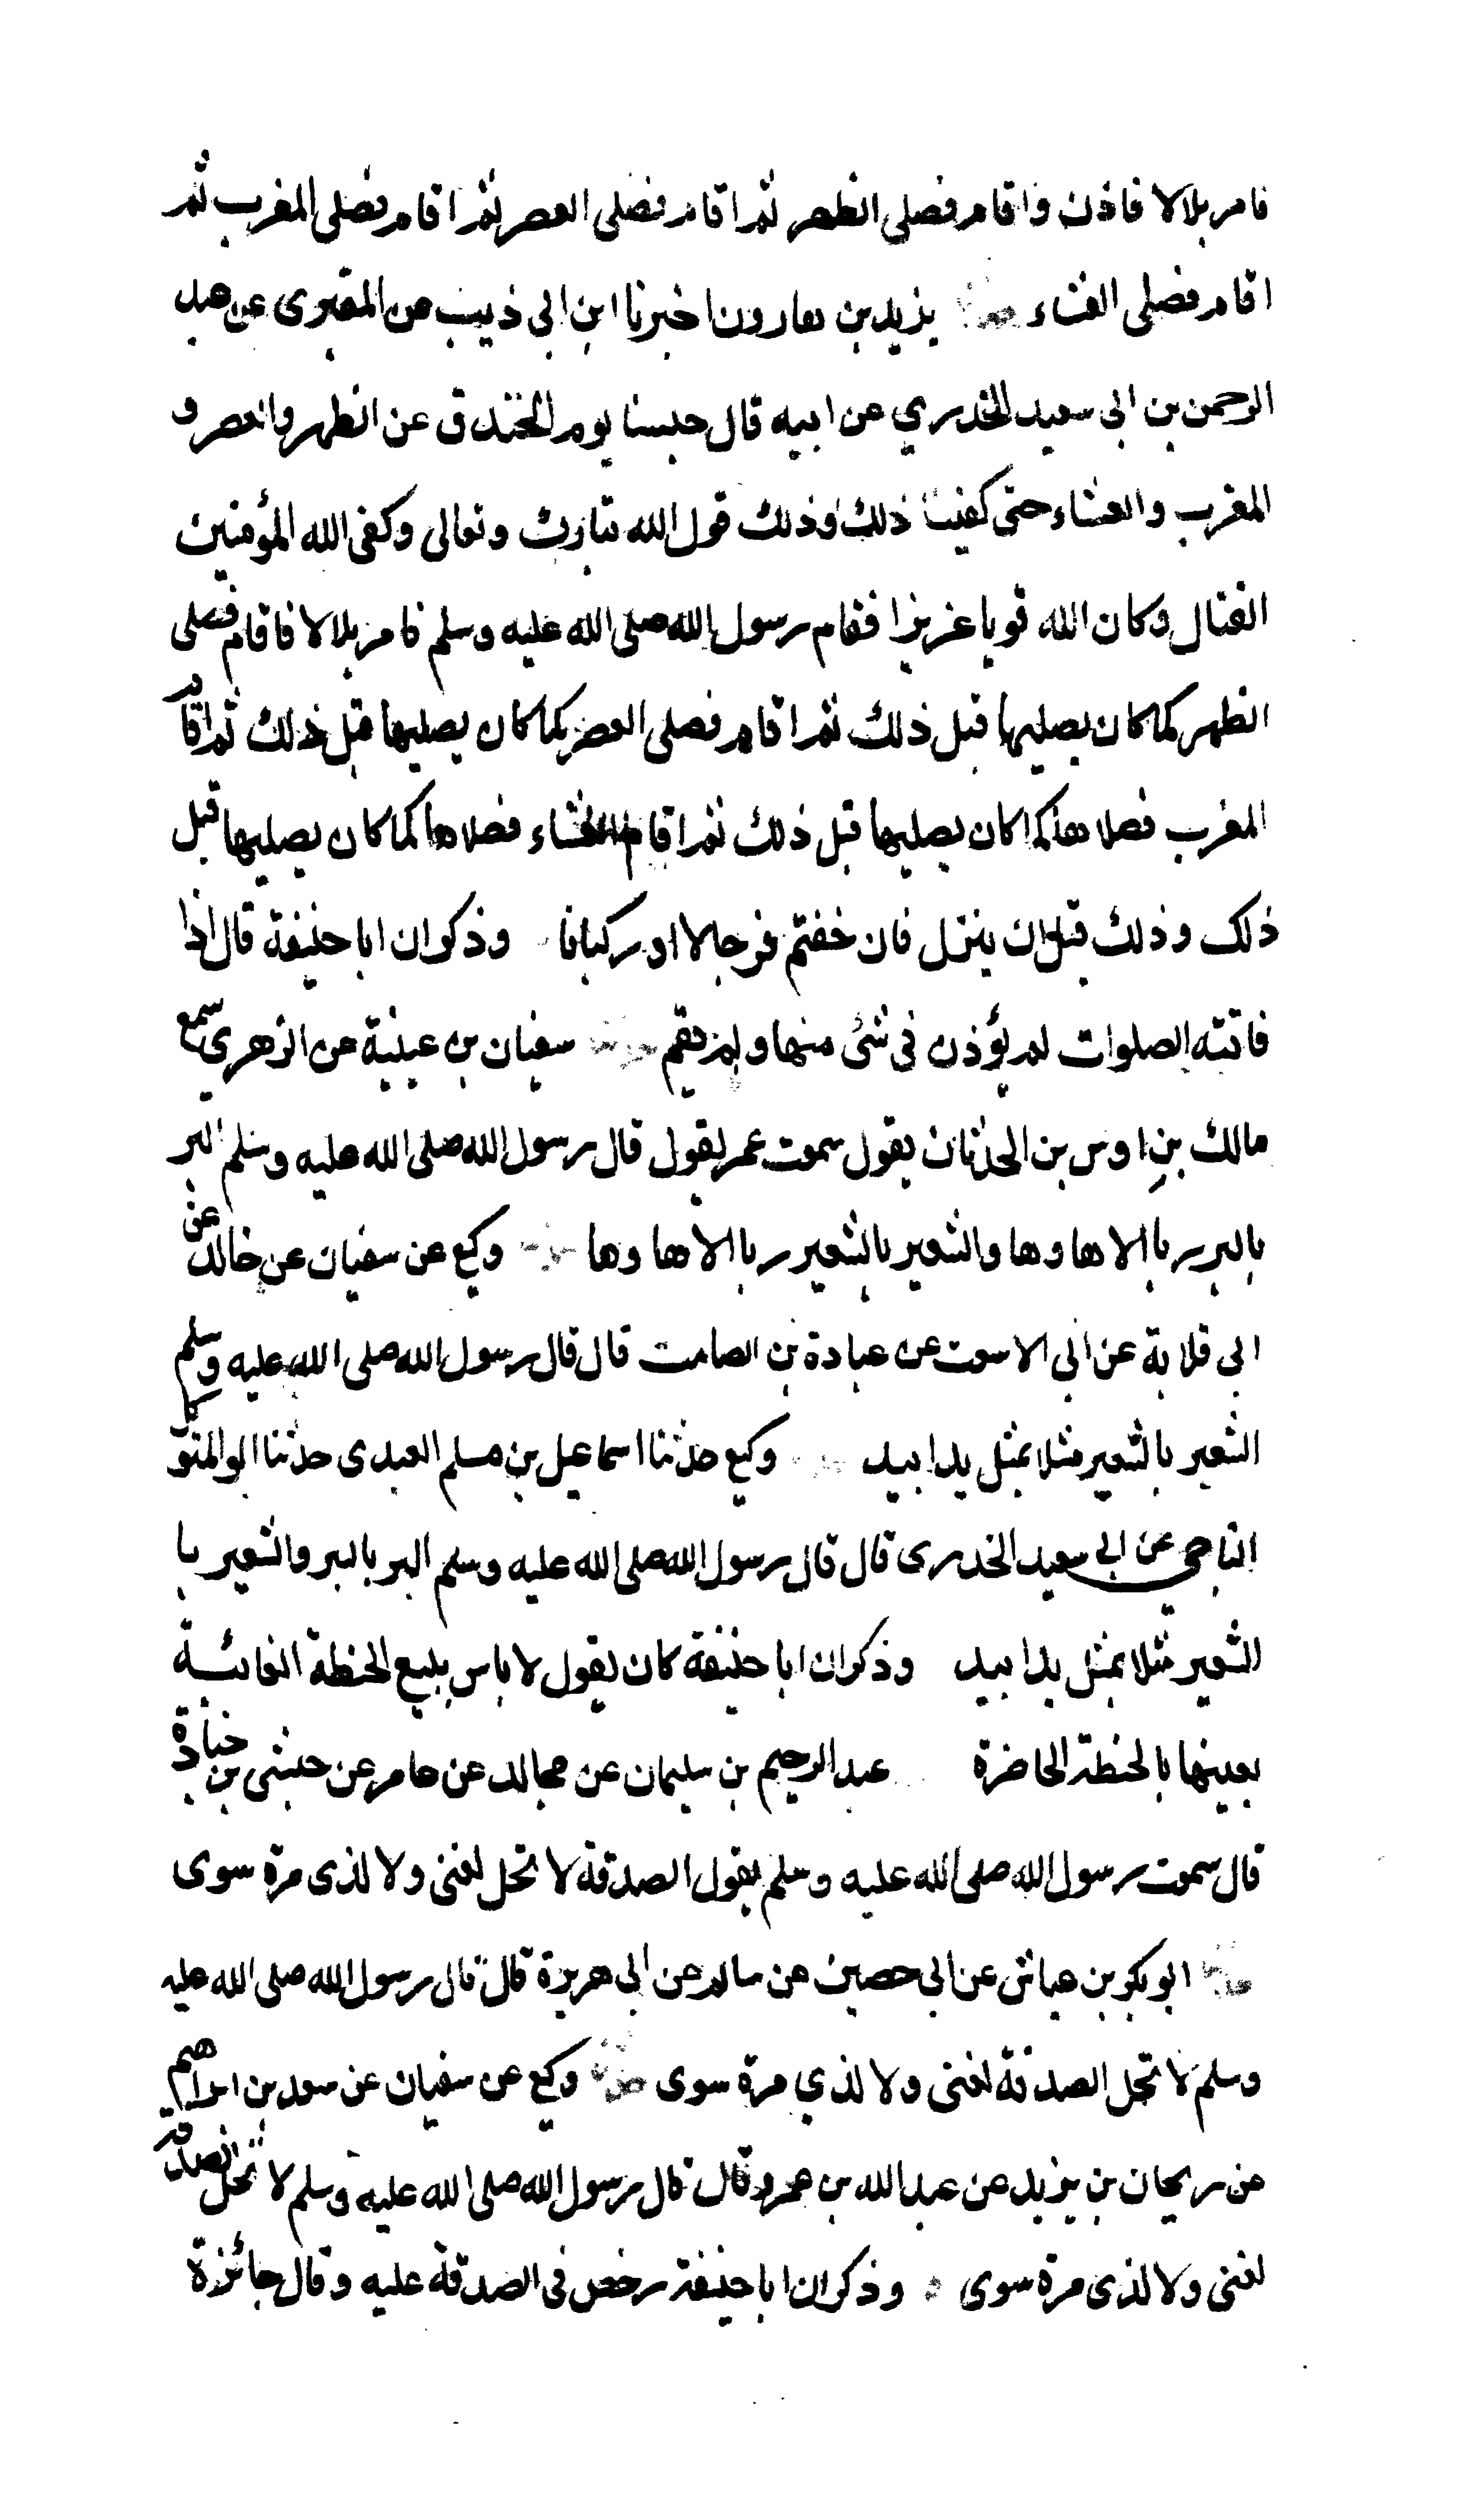 فامر بلالا فاذن واقام فصلى الظهر ثم اقام فصلى العصر ثم اقام فصلى المغرب ثم
اقام فصلى العشاء حدثنا يزيد بن هارون اخبرنا ابن ابي ذيب عن المقبرى عن عبد
الرحمن بن ابي سعيد الخدري عن ابيه قال حبسنا يوم الخندق عن الظهر والعصر و
المغرب والعشاء حتى كفينا ذلك وذلك قول الله تبارك وتعالى وكفى الله المؤمنين
القتال وكان الله قويا عزيزا فقام رسول الله صلى الله عليه وسلم فامر بلالا فاقام فصلى
الظهر كما كان يصليها قبل ذلك ثم اقام فصلى العصر كما كان يصليها قبل ذلك ثم اقام
المغرب فصلاها كما كان يصليها قبل ذلك ثم اقام العشاء فصلاها كما كان يصليها قبل
ذلك وذلك قبل ان ينزل فان خفتم فرجالا او ركبانا وذكر ان ابا حنيفة قال اذا
فاتته الصلوات لم يؤذن فى شئ منها ولم يقم حدثنا سفيان بن عيينة عن الزهري سمع
مالك بن اوس بن الحدثان يقول سمعت عمر يقول قال رسول الله صلى الله عليه وسلم البر
بالبر ربا الا ها وها والشعير بالشعير ربا الا ها وها حدثنا وكيع عن سفيان عن خالد عن
ابى قلابة عن ابى الاسعت عن عبادة بن الصامت قال قال رسول الله صلى الله عليه وسلم
الشعير بالشعير مثلا بمثل يدا بيد وكيع حدثنا اسماعيل بن مسلم العبدى حدثنا ابو المتوكل
الناجي عن ابي سعيد الخدرى قال قال رسول الله صلى الله عليه وسلم البر بالبر والشعير با
الشعير مثلا بمثل يدا بيد وذكر ان ابا حنيفة كان يقول لا باس ببيع الحنطة الغائبة
بعينها بالحنطة الحاضرة عبد الرحيم بن سليمان عن مجالد عن عامر عن حبشى بن جنادة
قال سمعت رسول الله صلى الله عليه وسلم يقول الصدقة لا تحل لغنى ولا لذى مرة سوى
حدثنا ابو بكر بن عياش عن ابى حصين عن سالم عن ابى هريرة قال قال رسول الله صلى الله عليه
وسلم لا تحل الصدقة لغنى ولا لذي مرة سوى حدثنا وكيع عن سفيان عن سعد بن ابراهيم
عن ريحان بن يزيد عن عبد الله بن عمرو قال قال رسول الله صلى الله عليه وسلم لا تحل الصدقة
لغنى ولا لذى مرة سوى وذكر ان ابا حنيفة رخص فى الصدقة عليه وقال جائزة